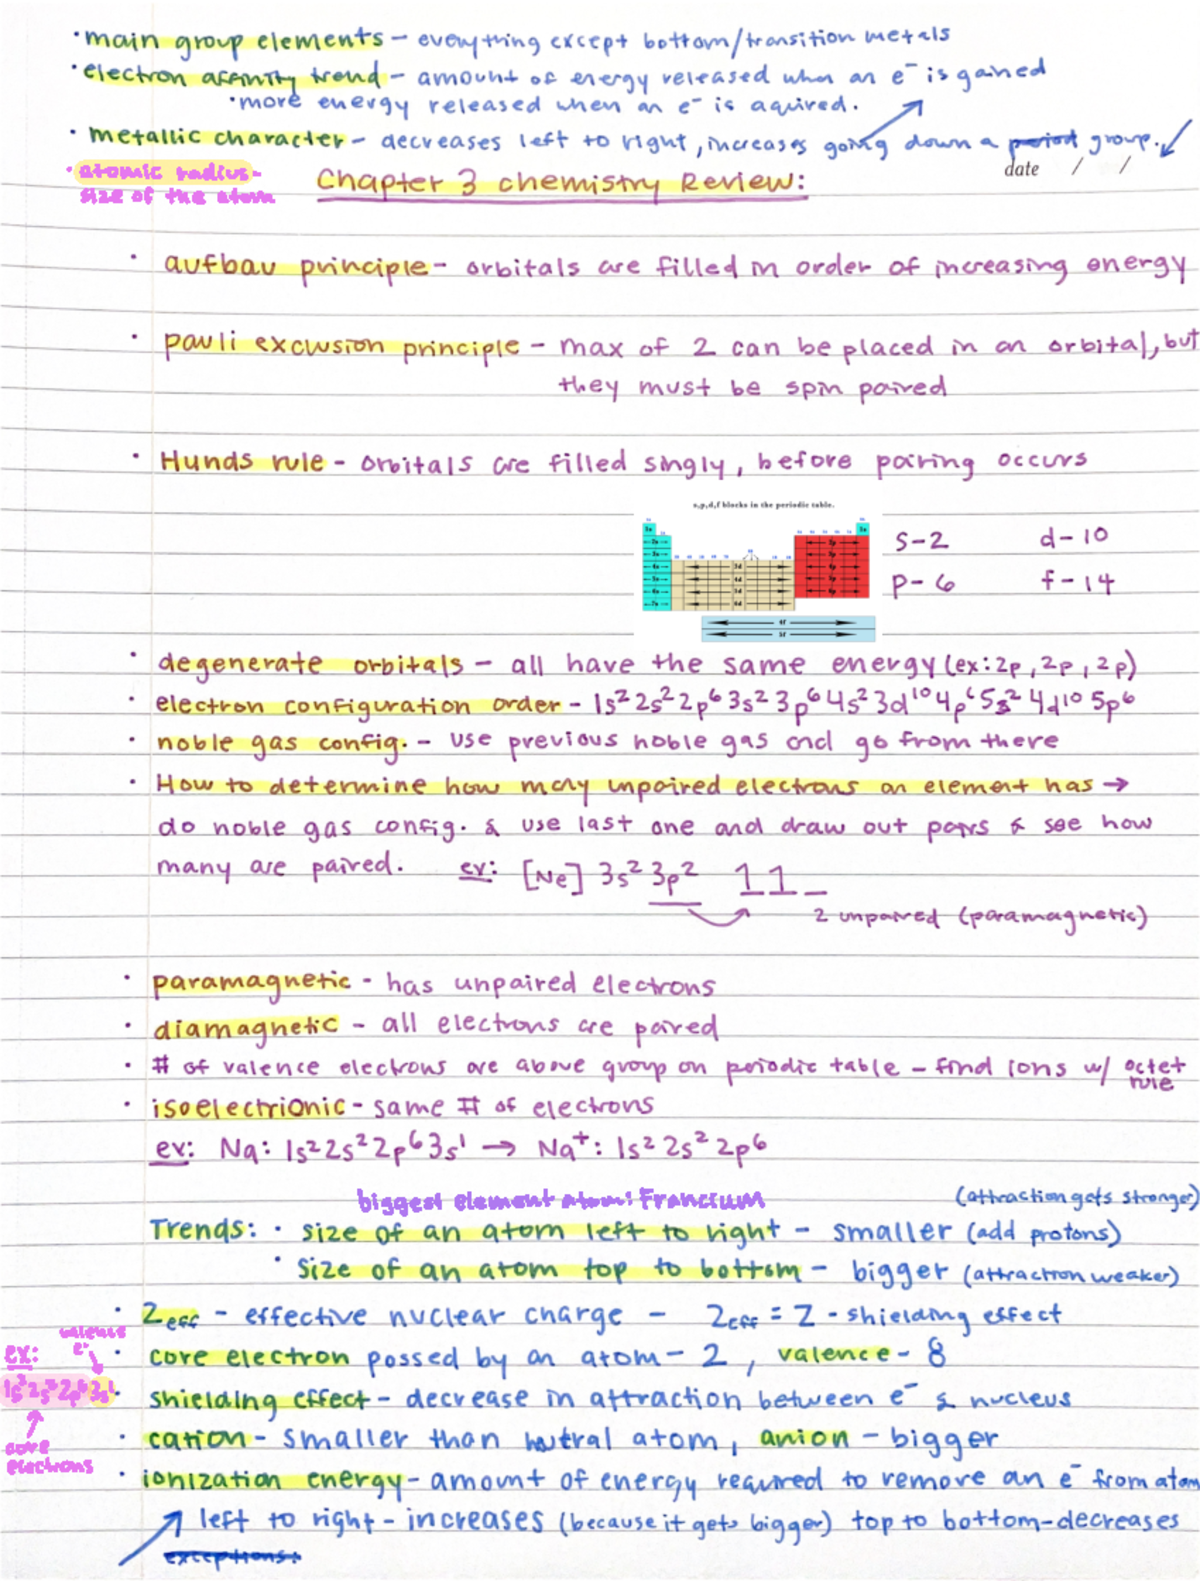 · main group elements - everything except bottom/transition metals
· electron affinity trend - amount of energy released when an e⁻ is gained
· more energy released when an e⁻ is aquired.
· metallic character - decreases left to right, increases going down a period group.
· atomic radius -
size of the atom
date / /
Chapter 3 chemistry Review:
· aufbau principle - orbitals are filled in order of increasing energy
· pauli exclusion principle - max of 2 can be placed in an orbital, but
they must be spin paired
· Hunds rule - orbitals are filled singly, before pairing occurs
s,p,d,f blocks in the periodic table.
s-2 d-10
p-6 f-14
3d
4d
5d
6d
4f
5f
· degenerate orbitals - all have the same energy (ex: 2p, 2p, 2p)
· electron configuration order - 1s² 2s² 2p⁶ 3s² 3p⁶ 4s² 3d¹⁰ 4p⁶ 5s² 4d¹⁰ 5p⁶
· noble gas config. - use previous noble gas and go from there
· How to determine how many unpaired electrons an element has →
do noble gas config. & use last one and draw out pairs & see how
many are paired. ex: [Ne] 3s² 3p² 1 1 _
2 unpaired (paramagnetic)
· paramagnetic - has unpaired electrons
· diamagnetic - all electrons are paired
· # of valence electrons are above group on periodic table - find ions w/ octet rule
· isoelectrionic - same # of electrons
ex: Na: 1s² 2s² 2p⁶ 3s¹ → Na⁺: 1s² 2s² 2p⁶
biggest element atom: Francium
(attraction gets stronger)
Trends: · size of an atom left to right - smaller (add protons)
· size of an atom top to bottom - bigger (attraction weaker)
· Zeff - effective nuclear charge - Zeff = Z - shielding effect
· core electron possed by an atom - 2, valence - 8
valence
e⁻
ex:
1s² 2s² 2p⁶ 3s¹
core
electrons
· shielding effect - decrease in attraction between e⁻ & nucleus
· cation - smaller than nutral atom, anion - bigger
· ionization energy - amount of energy required to remove an e⁻ from atom
left to right - increases (because it gets bigger) top to bottom - decreases
exceptions: